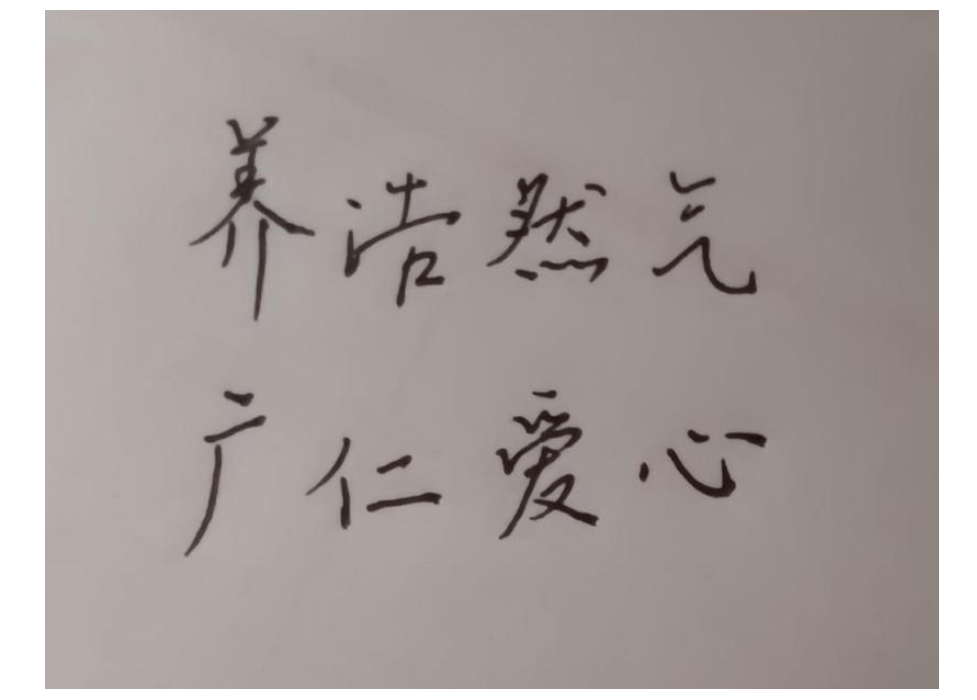 养浩然气
广仁爱心